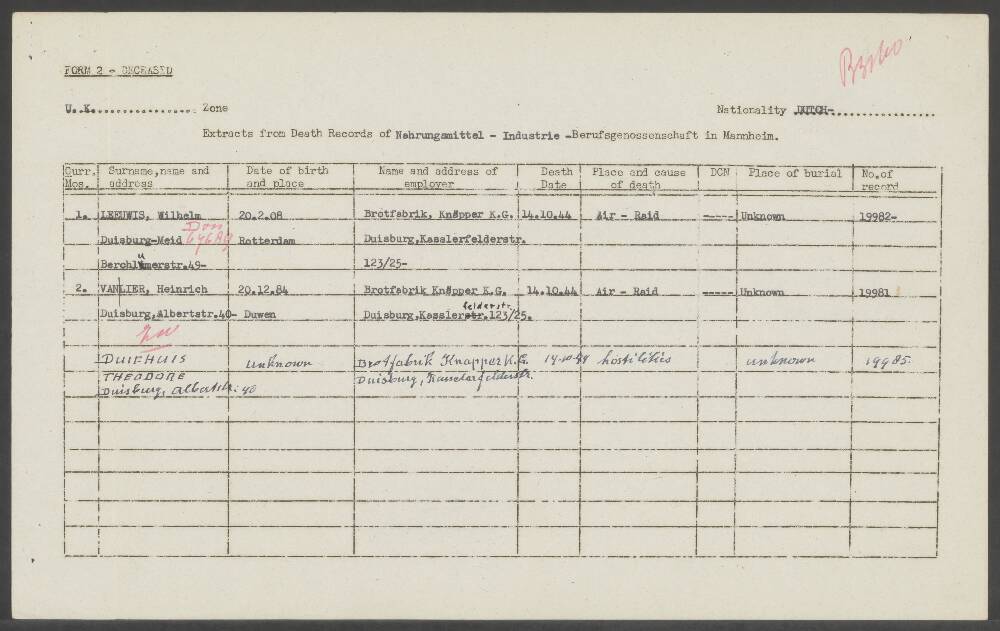 FORM 2 - DECEASED
U.K.................. Zone
Nationality DUTCH-................
Extracts from Death Records of Nahrungsmittel - Industrie -Berufsgenossenschaft in Mannheim.
Curr. Mos. Surname, name and address Date of birth and place Name and address of employer Death Date Place and cause of death DCN Place of burial No.of record
1. LEEUWIS, Wilhelm 20.2.08 Brotfabrik, Knäpper K.G. 14.10.44 Air - Raid ----- Unknown 19982-
Duisburg-Meid Rotterdam Duisburg,Kasslerfelderstr.
Berchlümerstr.49- 123/25-
2. VANLIER, Heinrich 20.12.84 Brotfabrik Knäpper K.G. 14.10.44 Air - Raid ----- Unknown 19981
Duisburg,Albertstr.40- Duwen Duisburg,Kasslerfelderstr.123/25.
DUIFHUIS unknown Brotfabrik Knapper K.G. 14-10-44 hostilities unknown 19985.
THEODORE Duisburg, Kasselarfelderstr.
Duisburg, Albertstr. 40